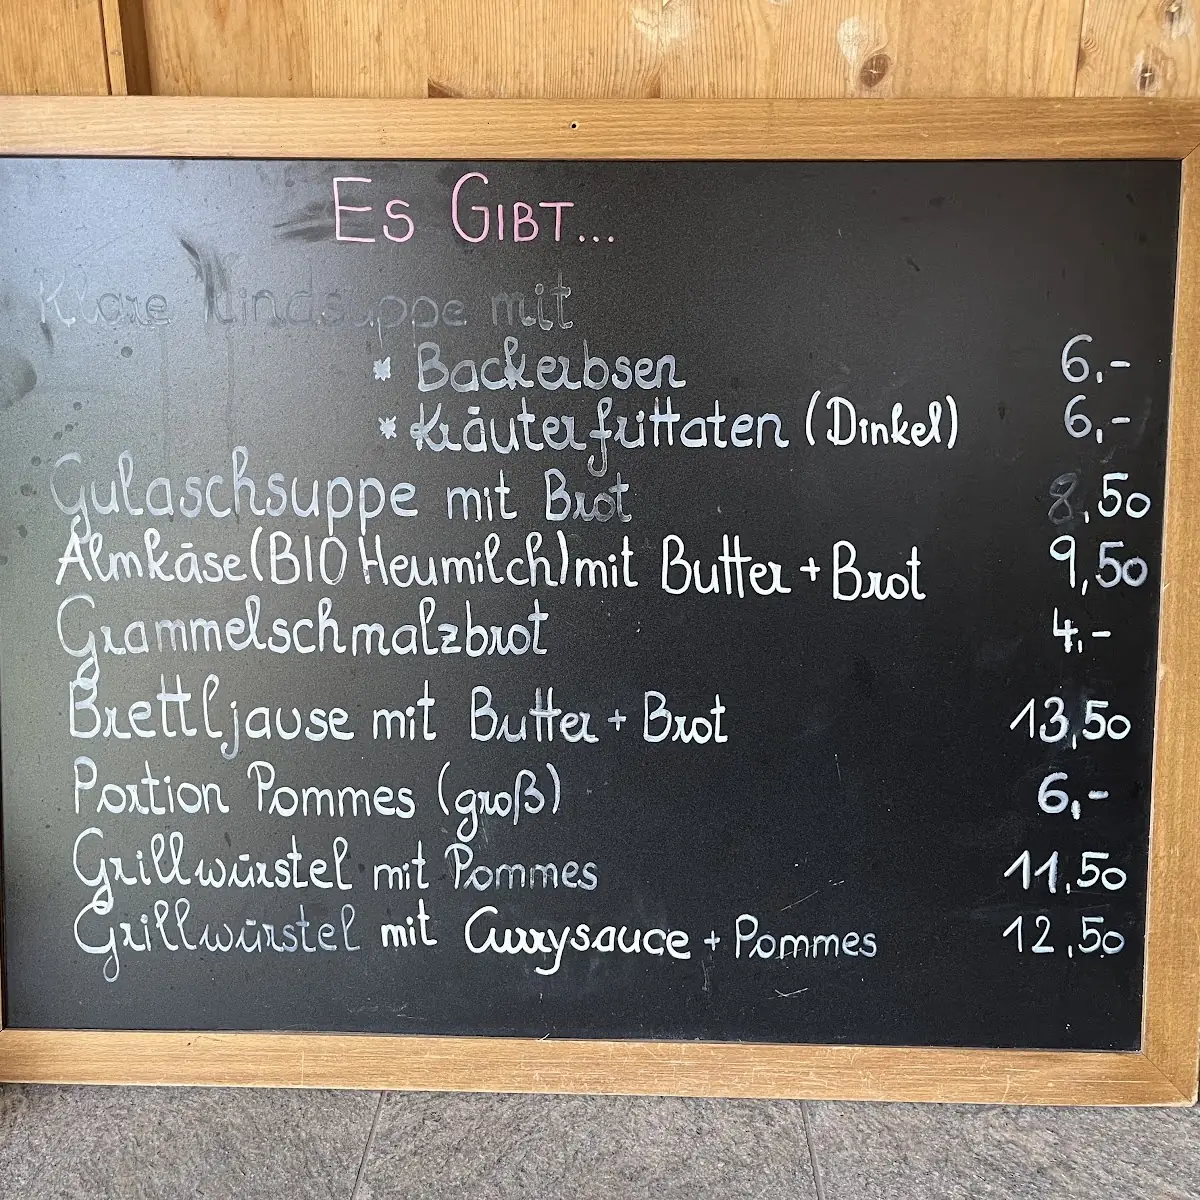 Es Gibt...
Klare Rindsuppe mit
* Backerbsen 6,-
* Kräuterfrittaten (Dinkel) 6,-
Gulaschsuppe mit Brot 8,50
Almkäse (BIO Heumilch) mit Butter + Brot 9,50
Grammelschmalzbrot 4,-
Brettljause mit Butter + Brot 13,50
Portion Pommes (groß) 6,-
Grillwürstel mit Pommes 11,50
Grillwürstel mit Currysauce + Pommes 12,50